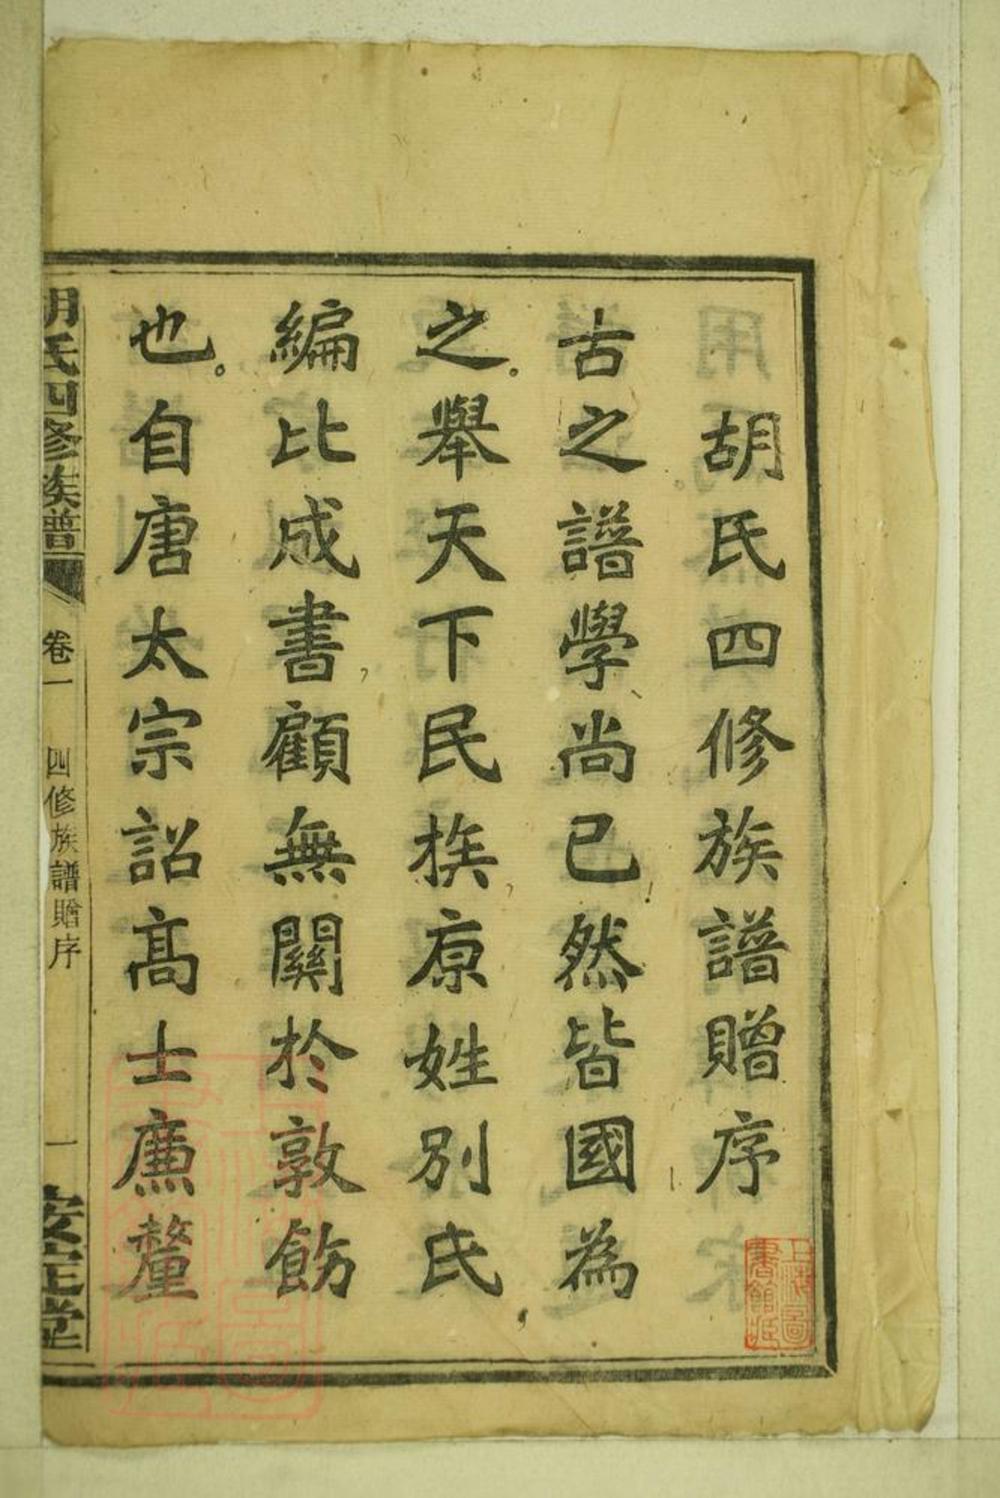 胡氏四修族譜贈序
古之譜學尚已然皆國為
之舉天下民族原姓別氏
編比成書顧無關於敦飭
也自唐太宗詔高士廉釐
胡氏四修族譜
卷一
四修族譜贈序
一
安定堂
上海圖書館藏